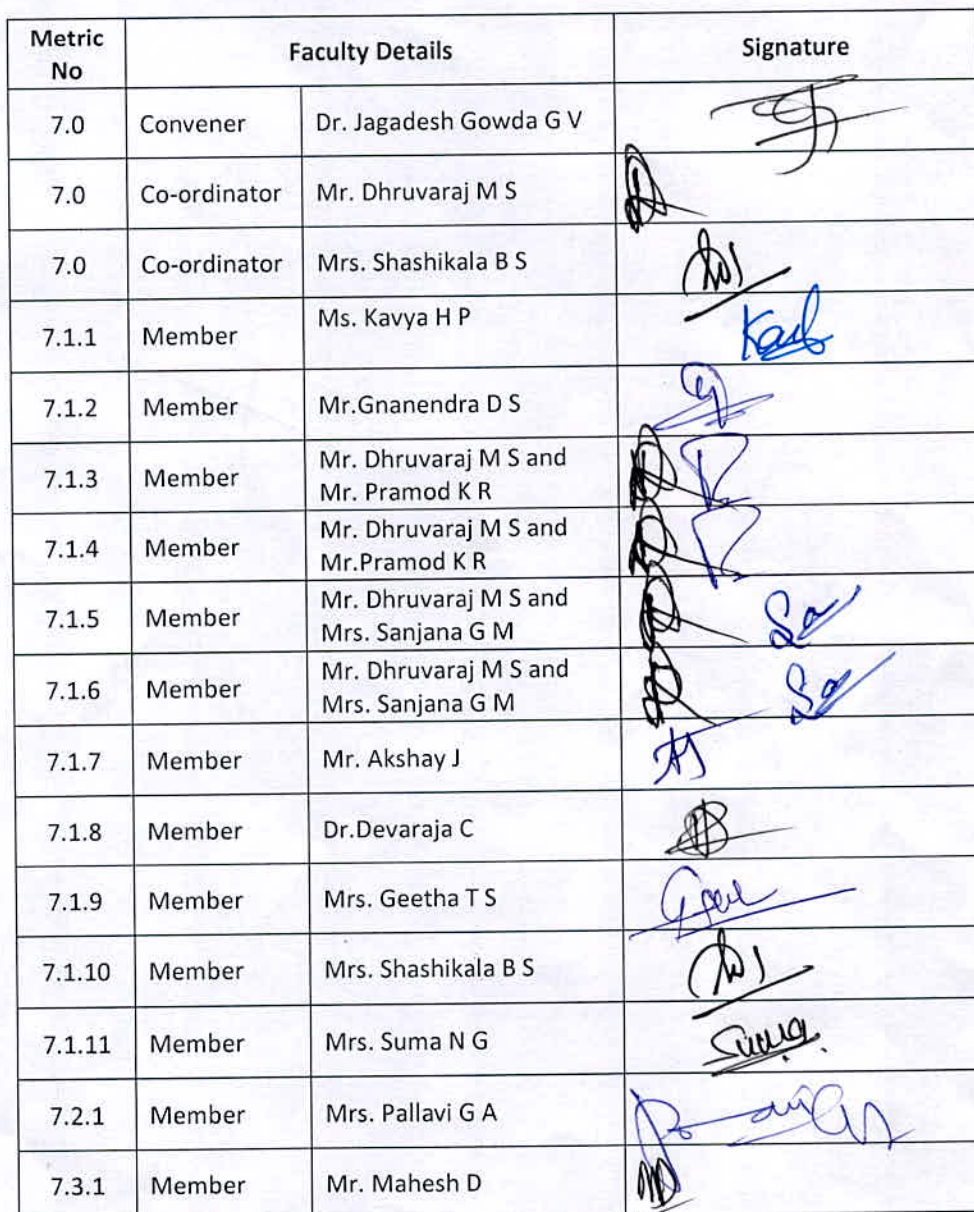 Metric No Faculty Details Signature
7.0 Convener Dr. Jagadesh Gowda G V
7.0 Co-ordinator Mr. Dhruvaraj M S
7.0 Co-ordinator Mrs. Shashikala B S
7.1.1 Member Ms. Kavya H P
7.1.2 Member Mr.Gnanendra D S
7.1.3 Member Mr. Dhruvaraj M S and
Mr. Pramod K R
7.1.4 Member Mr. Dhruvaraj M S and
Mr.Pramod K R
7.1.5 Member Mr. Dhruvaraj M S and
Mrs. Sanjana G M
7.1.6 Member Mr. Dhruvaraj M S and
Mrs. Sanjana G M
7.1.7 Member Mr. Akshay J
7.1.8 Member Dr.Devaraja C
7.1.9 Member Mrs. Geetha T S
7.1.10 Member Mrs. Shashikala B S
7.1.11 Member Mrs. Suma N G
7.2.1 Member Mrs. Pallavi G A
7.3.1 Member Mr. Mahesh D